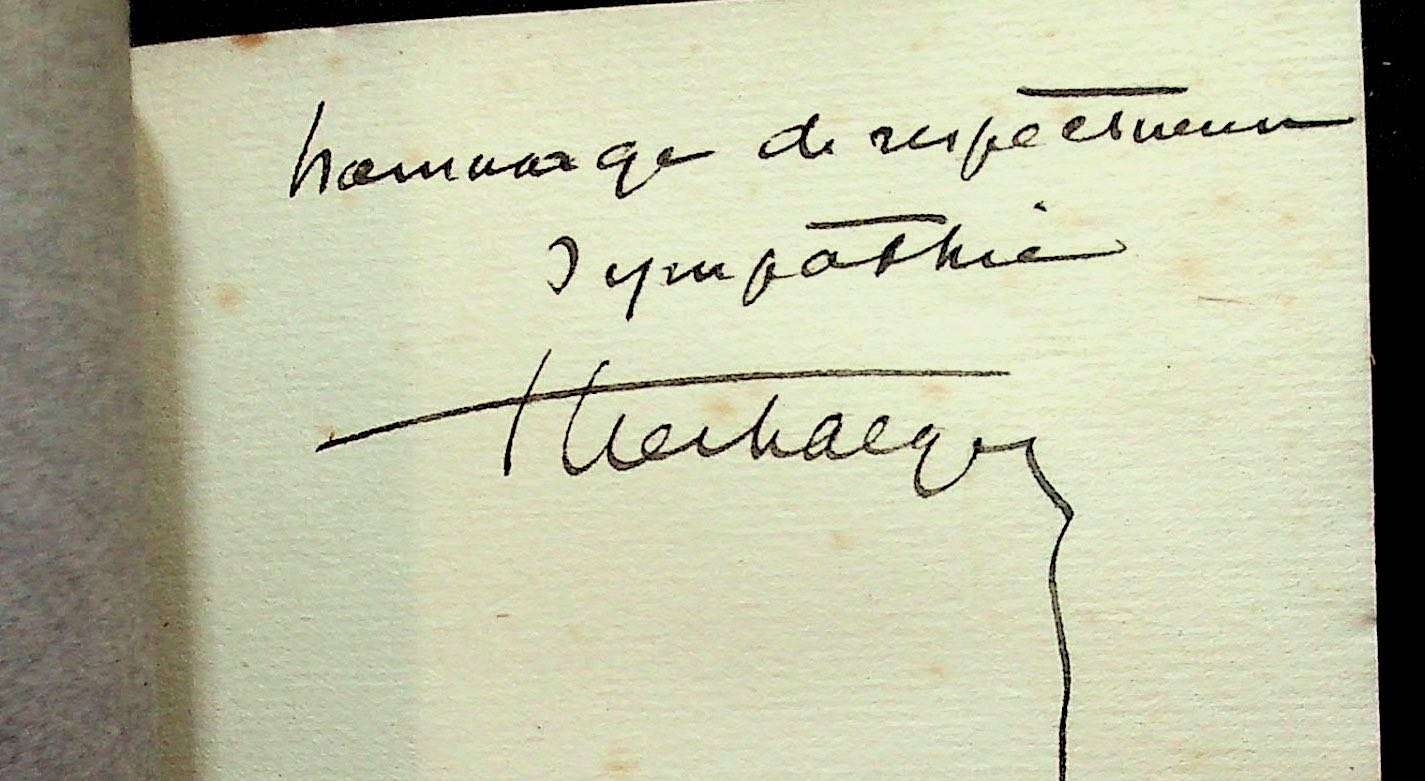 hommage de respectueuse
sympathie
Verhaegen